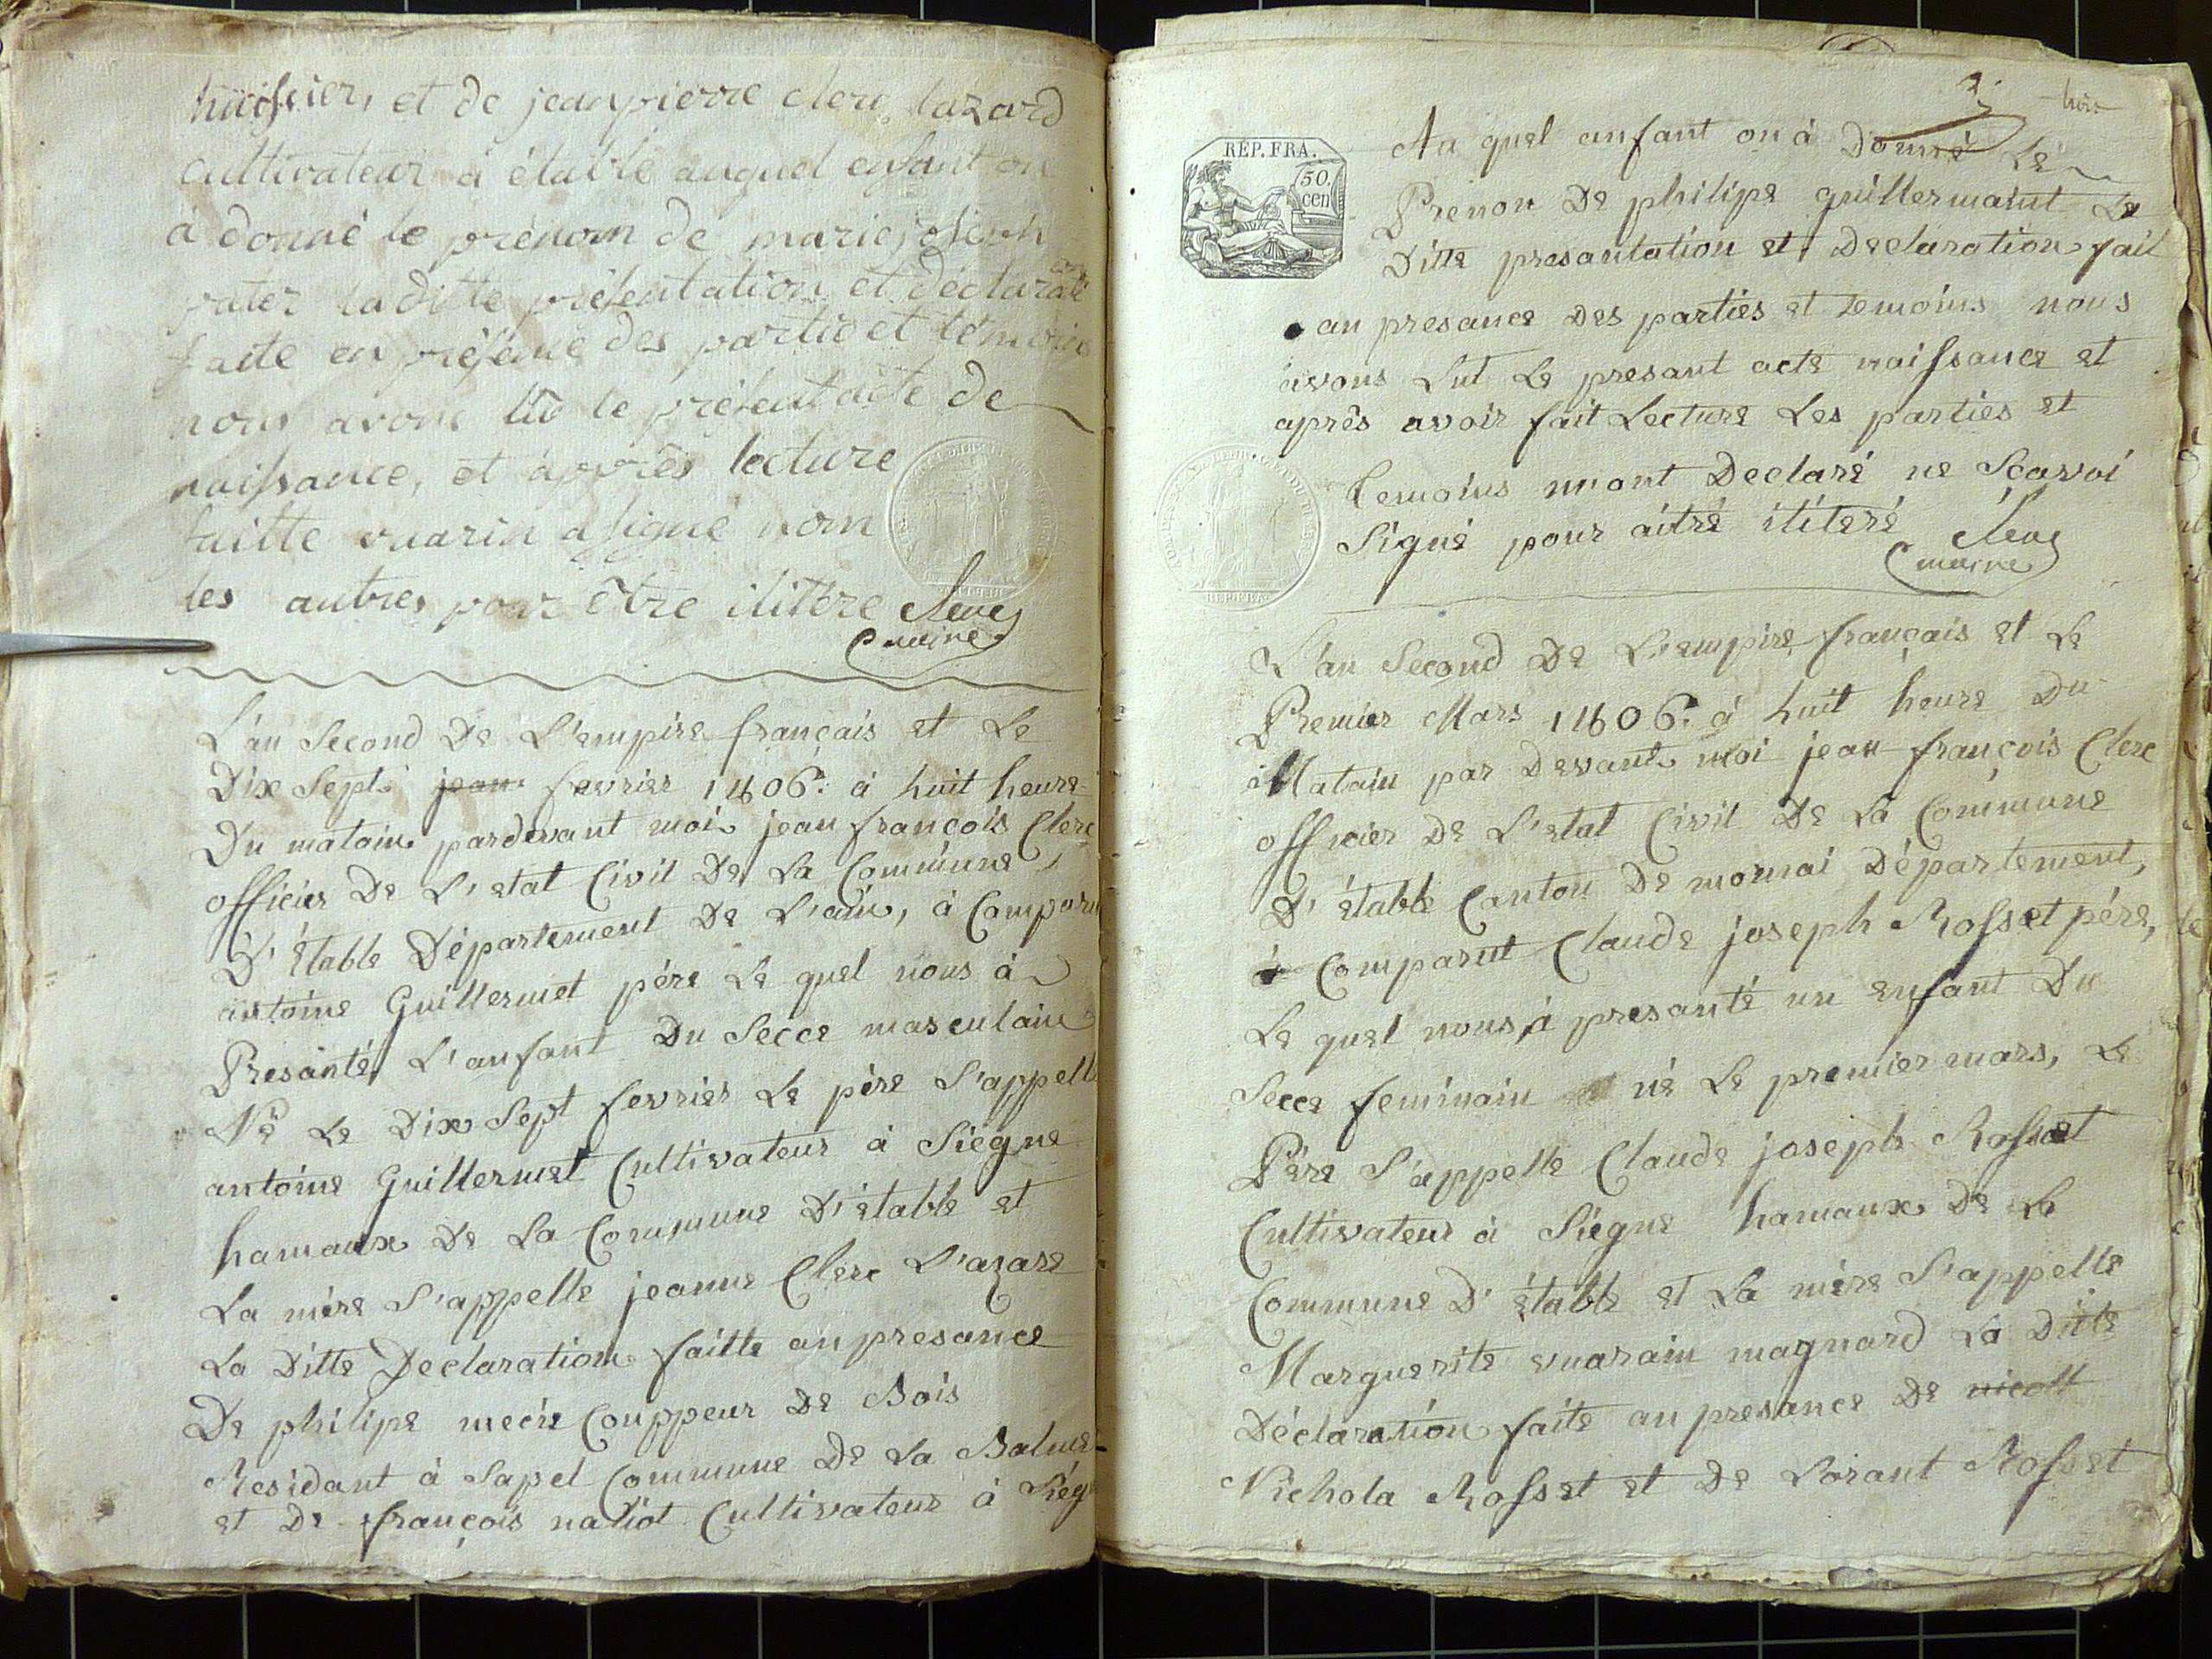 huissier, et de jean pierre clerc lazard
cultivateur à étable auquel enfant on
à donné le prénom de marie joseph
laditte présentation et déclarati
faite en présence des partie et témoin
nous avons lu le présent acte de
naissance, et après lecture
faitte vuarin a signé non
les autres pour être ilitere Clerc
maire
L'an Second De L'empire français et Le
Dix Sept jean fevrier 1806. à huit heure
Du matain pardevant moi jean françois Clerc
officier De L'etat Civil De La Commune
D'étable Département De L'ain, à Comparu
antoine Guillermet père Le quel nous à
Presanté L'anfant Du Secce masculain
Né Le Dix Sept fevrier Le père S'appelle
antoine Guillermet Cultivateur à Siègne
hamaux De La Commune D'étable et
La mère S'appelle jeanne Clerc L'azare
La Ditte Declaration faitte an presance
De philipe Couppeur De Bois
Residant à Sapel Commune De La Balme
et De françois naliot Cultivateur à Siég
3 trois
RÉP. FRA.
50. cen
Au quel anfant on à Donné Le
Prenon De philipe guillermaint La
Ditte presantation et Declaration fait
an presance Des parties et temoins nous
avons Lut Le presant acte naissance et
après avoir fait Lecture Les parties et
temoins m'ont Declaré ne Scavoi
Signé pour aitré ilitere Clerc
maire
L'an Second De L'empire français et Le
Premier Mars 1806. à huit heure Du
Matain par Devant moi jean françois Clerc
officier De L'etat Civil De La Commune
D'étable Canton De mornai Département,
à Comparut Claude joseph Rosset père,
Le quel nous à presanté un enfant Du
Secce feminain né Le premier mars, Le
Père S'appelle Claude joseph Rosset
Cultivateur à Siègne hamaux De La
Commune D'étable et La mère S'appelle
Marguerite vuarain magnard La Ditte
Déclaration faite an presance De nicolt
Nichola Rosset et De Lorant Rosset